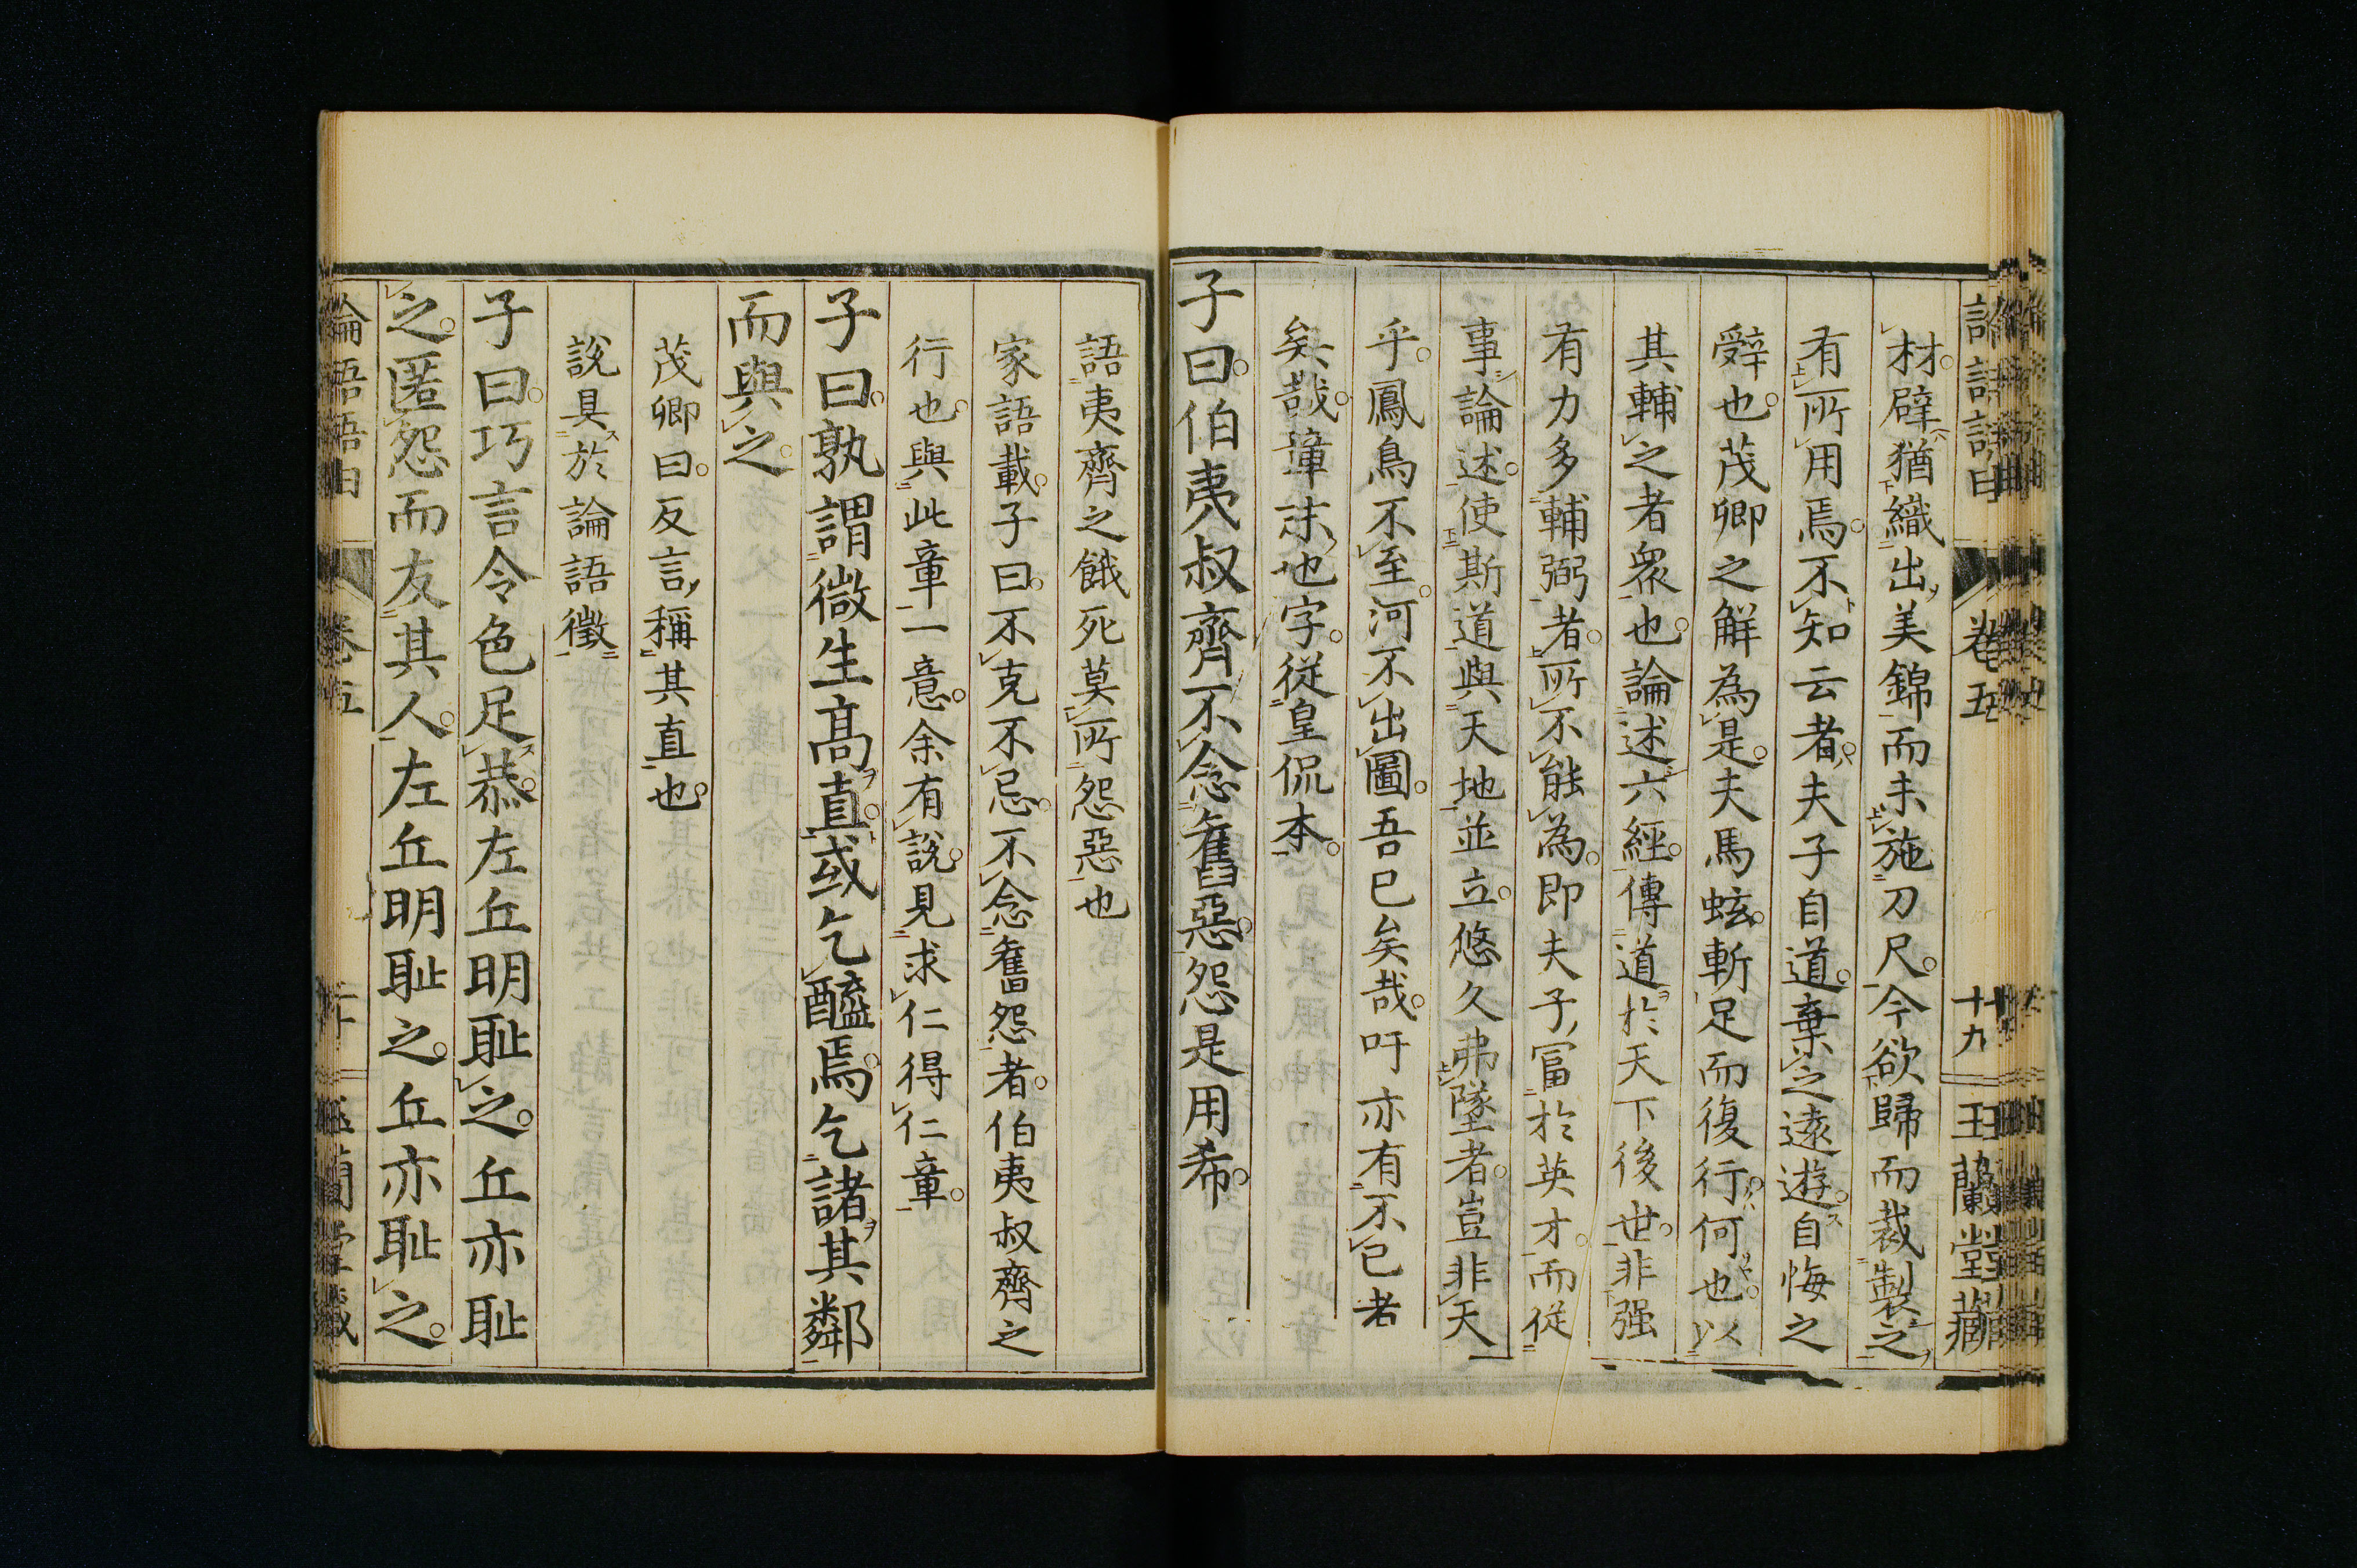 論語語由 卷五 十九 玉蘭堂藏
材。辟猶織出美錦而未施刀尺。今欲歸而裁製之
有所用焉。不知云者。夫子自道。棄之遠遊。自悔之
辭也。茂卿之解為是。夫馬蚿。斬足而復行。何也。以
其輔之者衆也。論述六經。傳道於天下後世。非强
有力多輔弼者。所不能為。即夫子富於英才。而從
事論述。使斯道與天地並立。悠久弗墜者。豈非天
乎。鳳鳥不至。河不出圖。吾已矣哉。吁亦有不已者
矣哉。章末也字。從皇侃本。
子曰。伯夷叔齊不念舊惡。怨是用希。
語夷齊之餓死莫所怨惡也
家語載。子曰。不克不忌。不念舊怨者。伯夷叔齊之
行也。與此章一意。余有說。見求仁得仁章。
子曰。孰謂微生高直。或乞醯焉。乞諸其鄰
而與之。
茂卿曰。反言稱其直也。
說具於論語徵
子曰。巧言令色足恭。左丘明恥之。丘亦恥
之。匿怨而友其人。左丘明恥之。丘亦恥之。
論語語由 卷五 二十 玉蘭堂藏